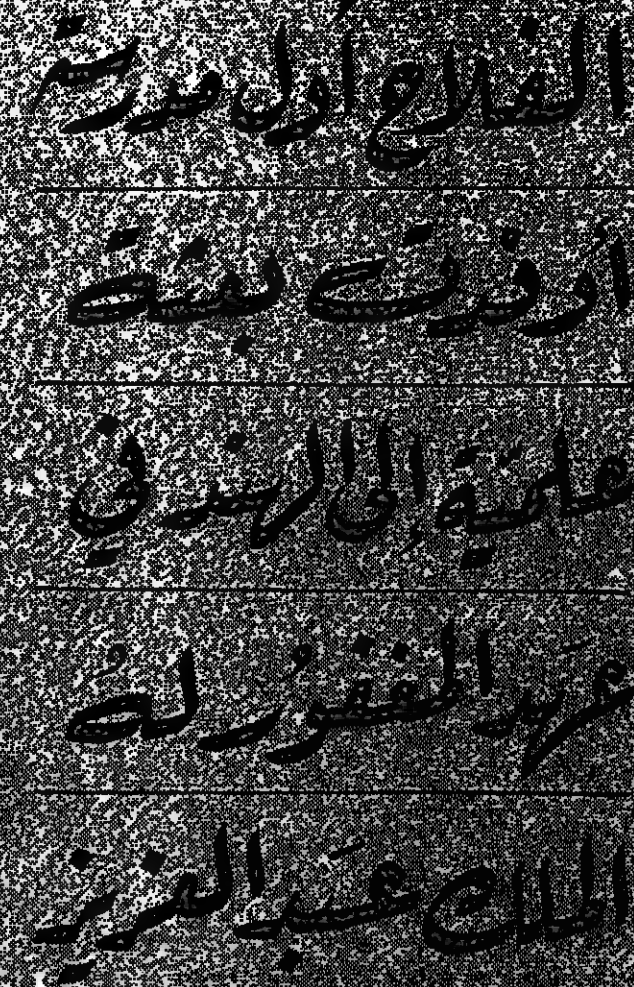 الفلاح أول مدرسة
أوفدت بعثة
علمية إلى الهند في
عهد المغفور له
الملك عبد العزيز